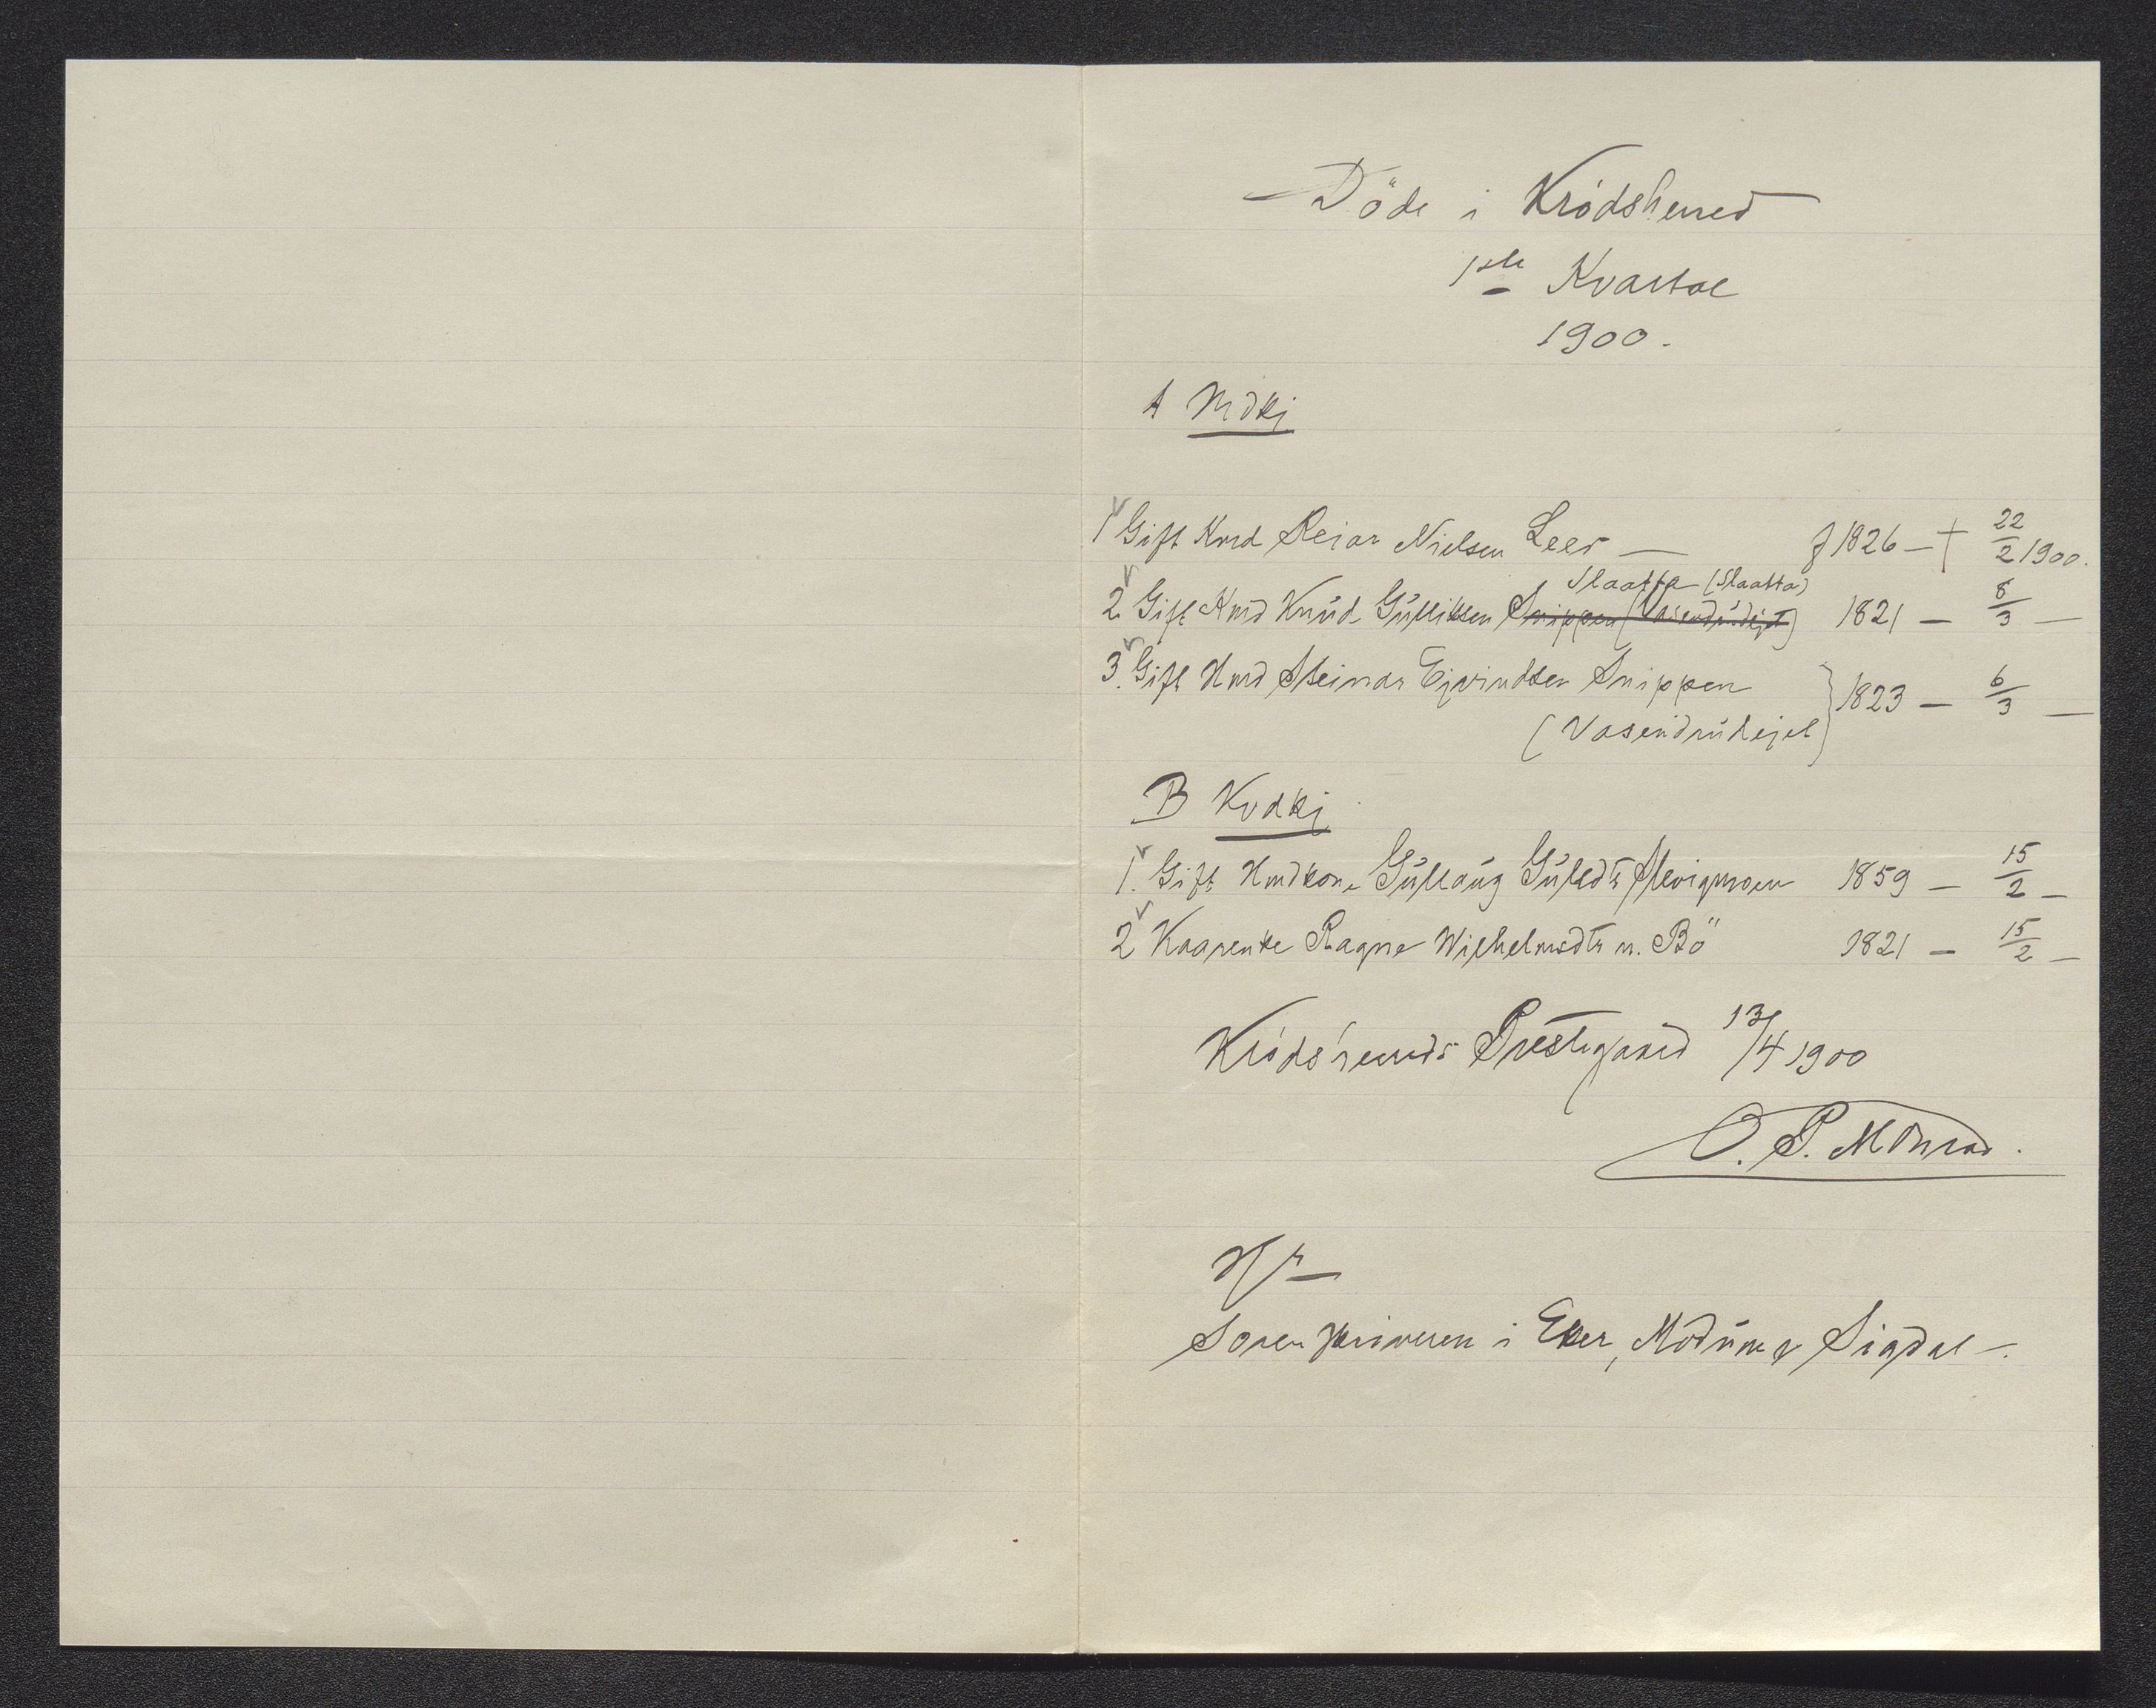 Döde i Krödsherred
1ste Kvartal
1900.
A Mdkj
1 Gift Hmd Reiar Nielsen Leer — f 1826 — † 22/2 1900.
Slaatta (Slaatta)
2. Gift Hmd Knud Gulliksen Snippen (Vasendrudejet) 1821 — 8/3 —
3. Gift Hmd Steinar Ejvindsen Snippen } 1823 — 6/3 —
(Vasendrudejet)
B Kvdkj
1. Gift Hmdkone Gullaug Gulsdtr 1859 — 15/2 —
2 Kaarenke Ragne Wilhelmsdtr n. Bö 1821 — 15/2 —
Krödsherreds Prestegaard 13/4 1900
O. P. Monrad.
Hr
Sorenskriveren i Eker, Modum & Sigdal —.